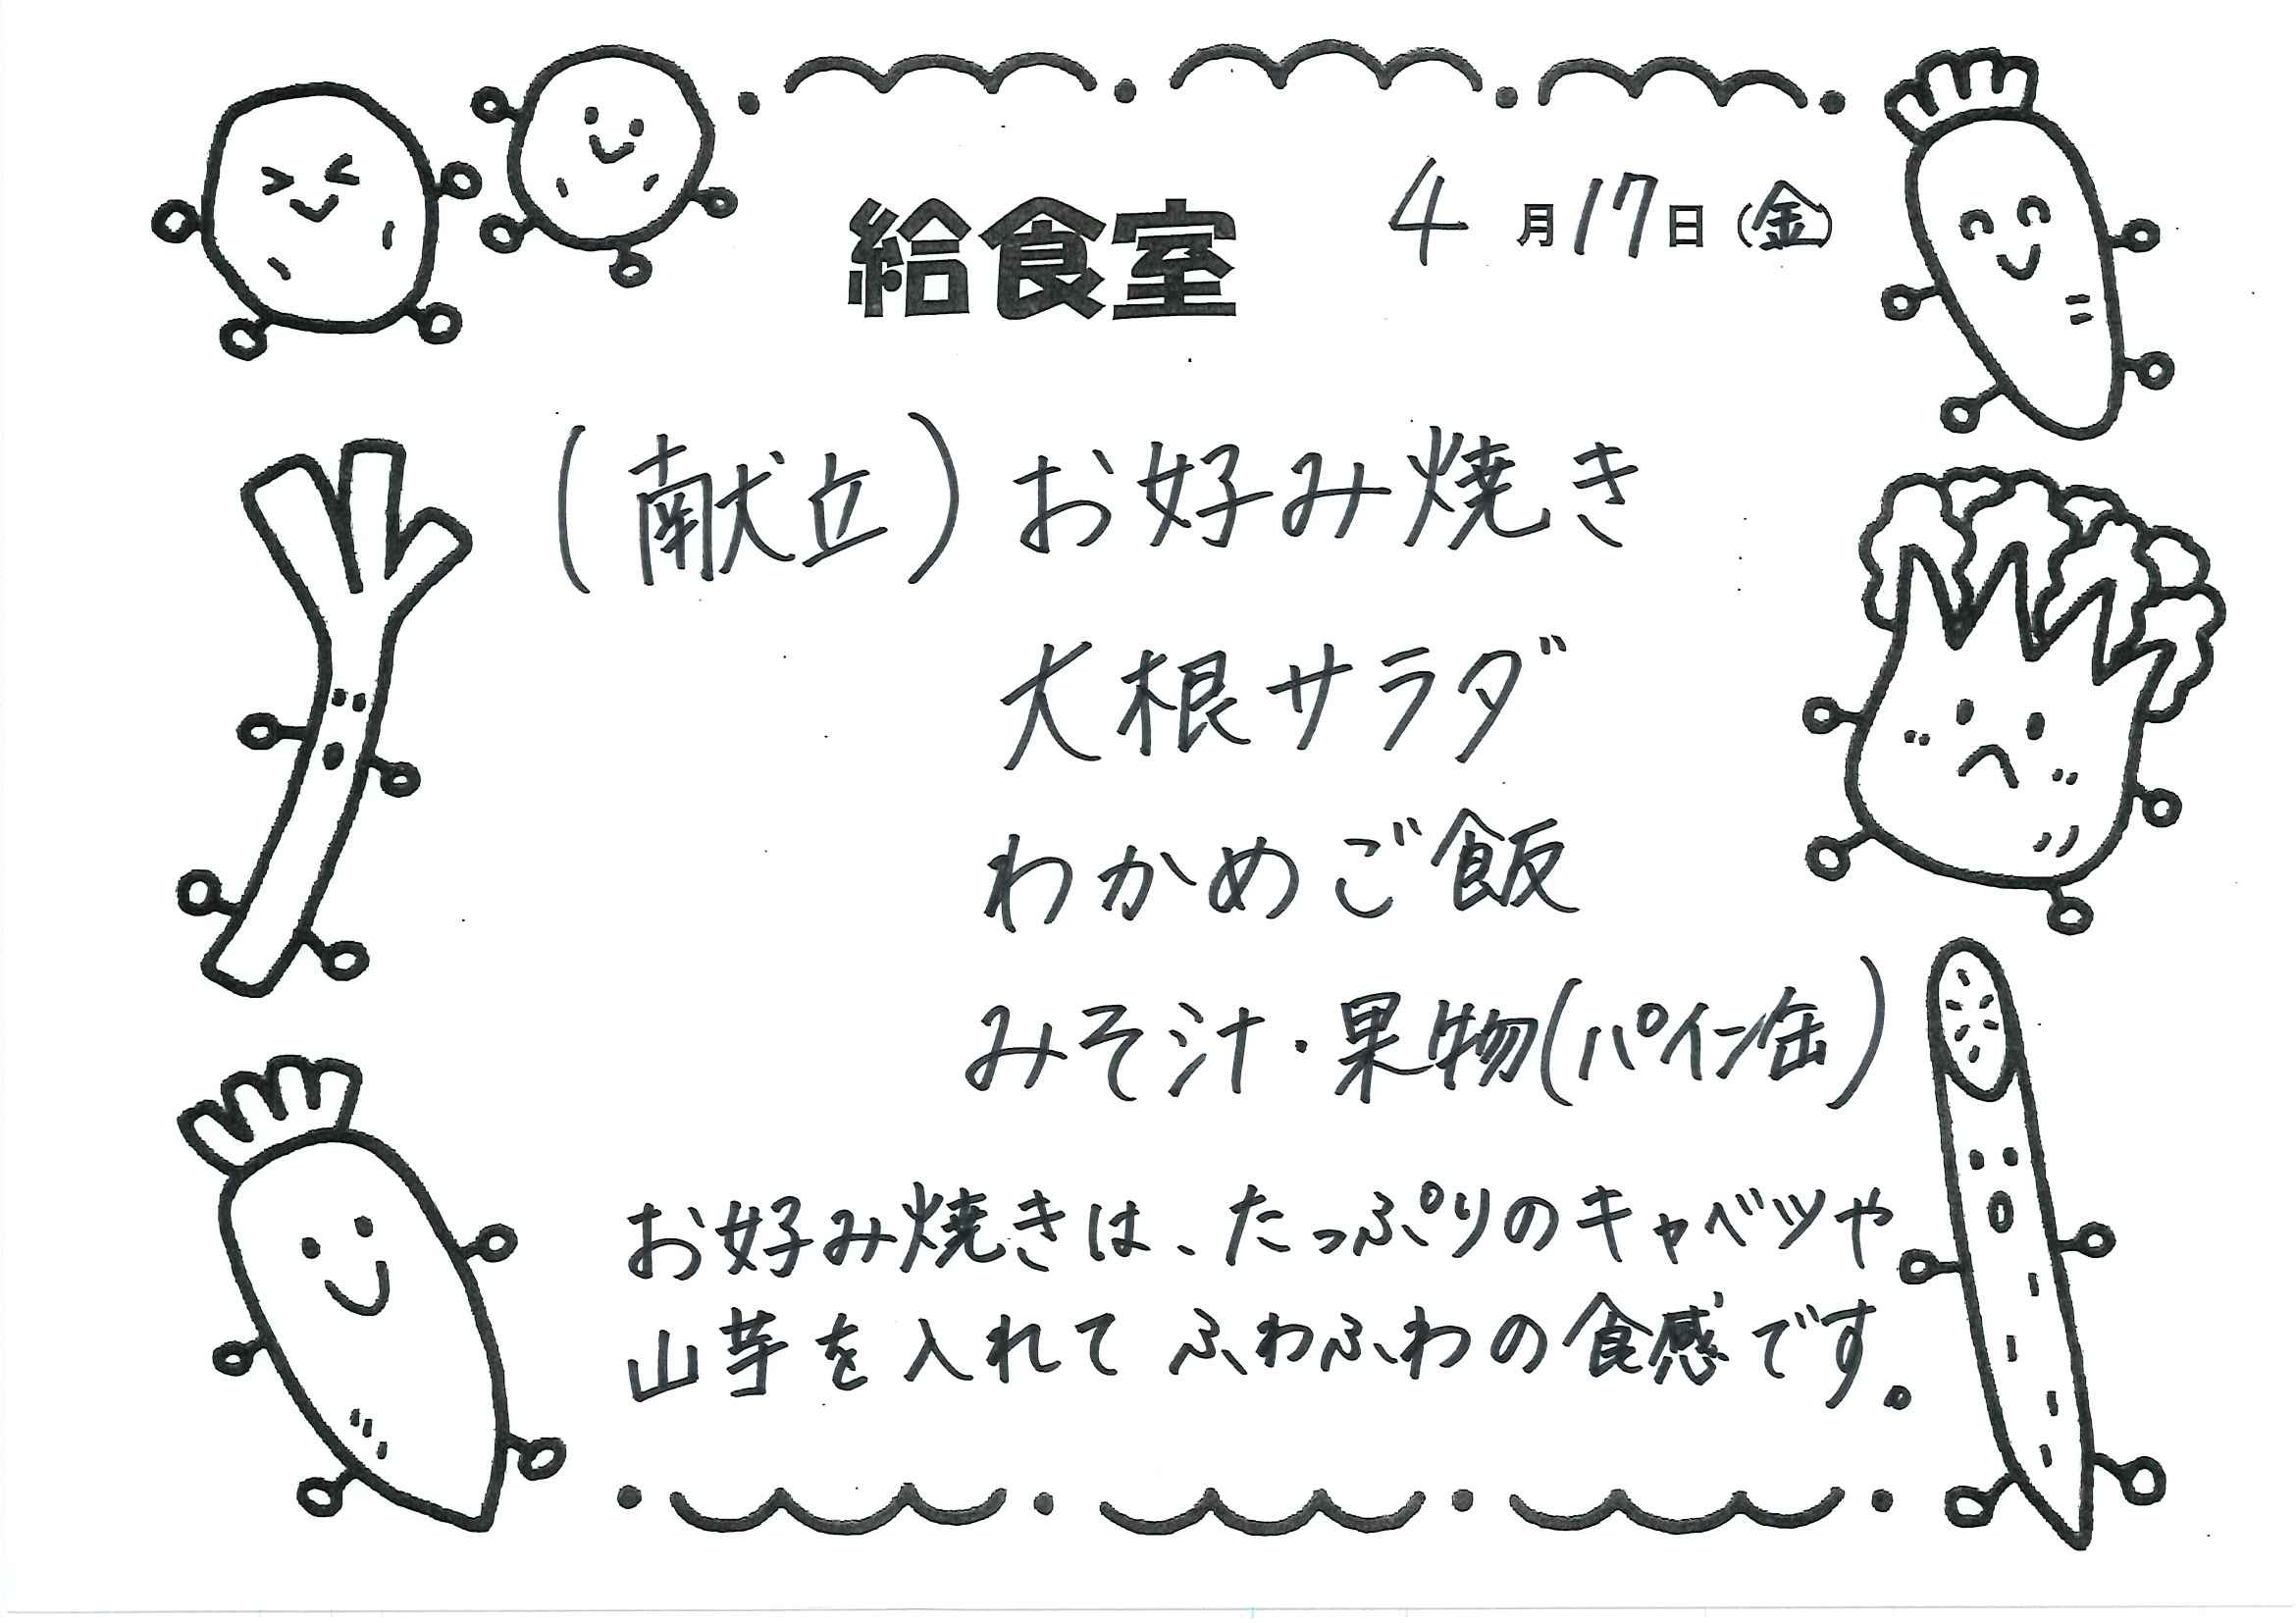 給食室 4月17日(金)
(献立)お好み焼き
大根サラダ
わかめご飯
みそ汁・果物(パイン缶)
お好み焼きは、たっぷりのキャベツや
山芋を入れてふわふわの食感です。